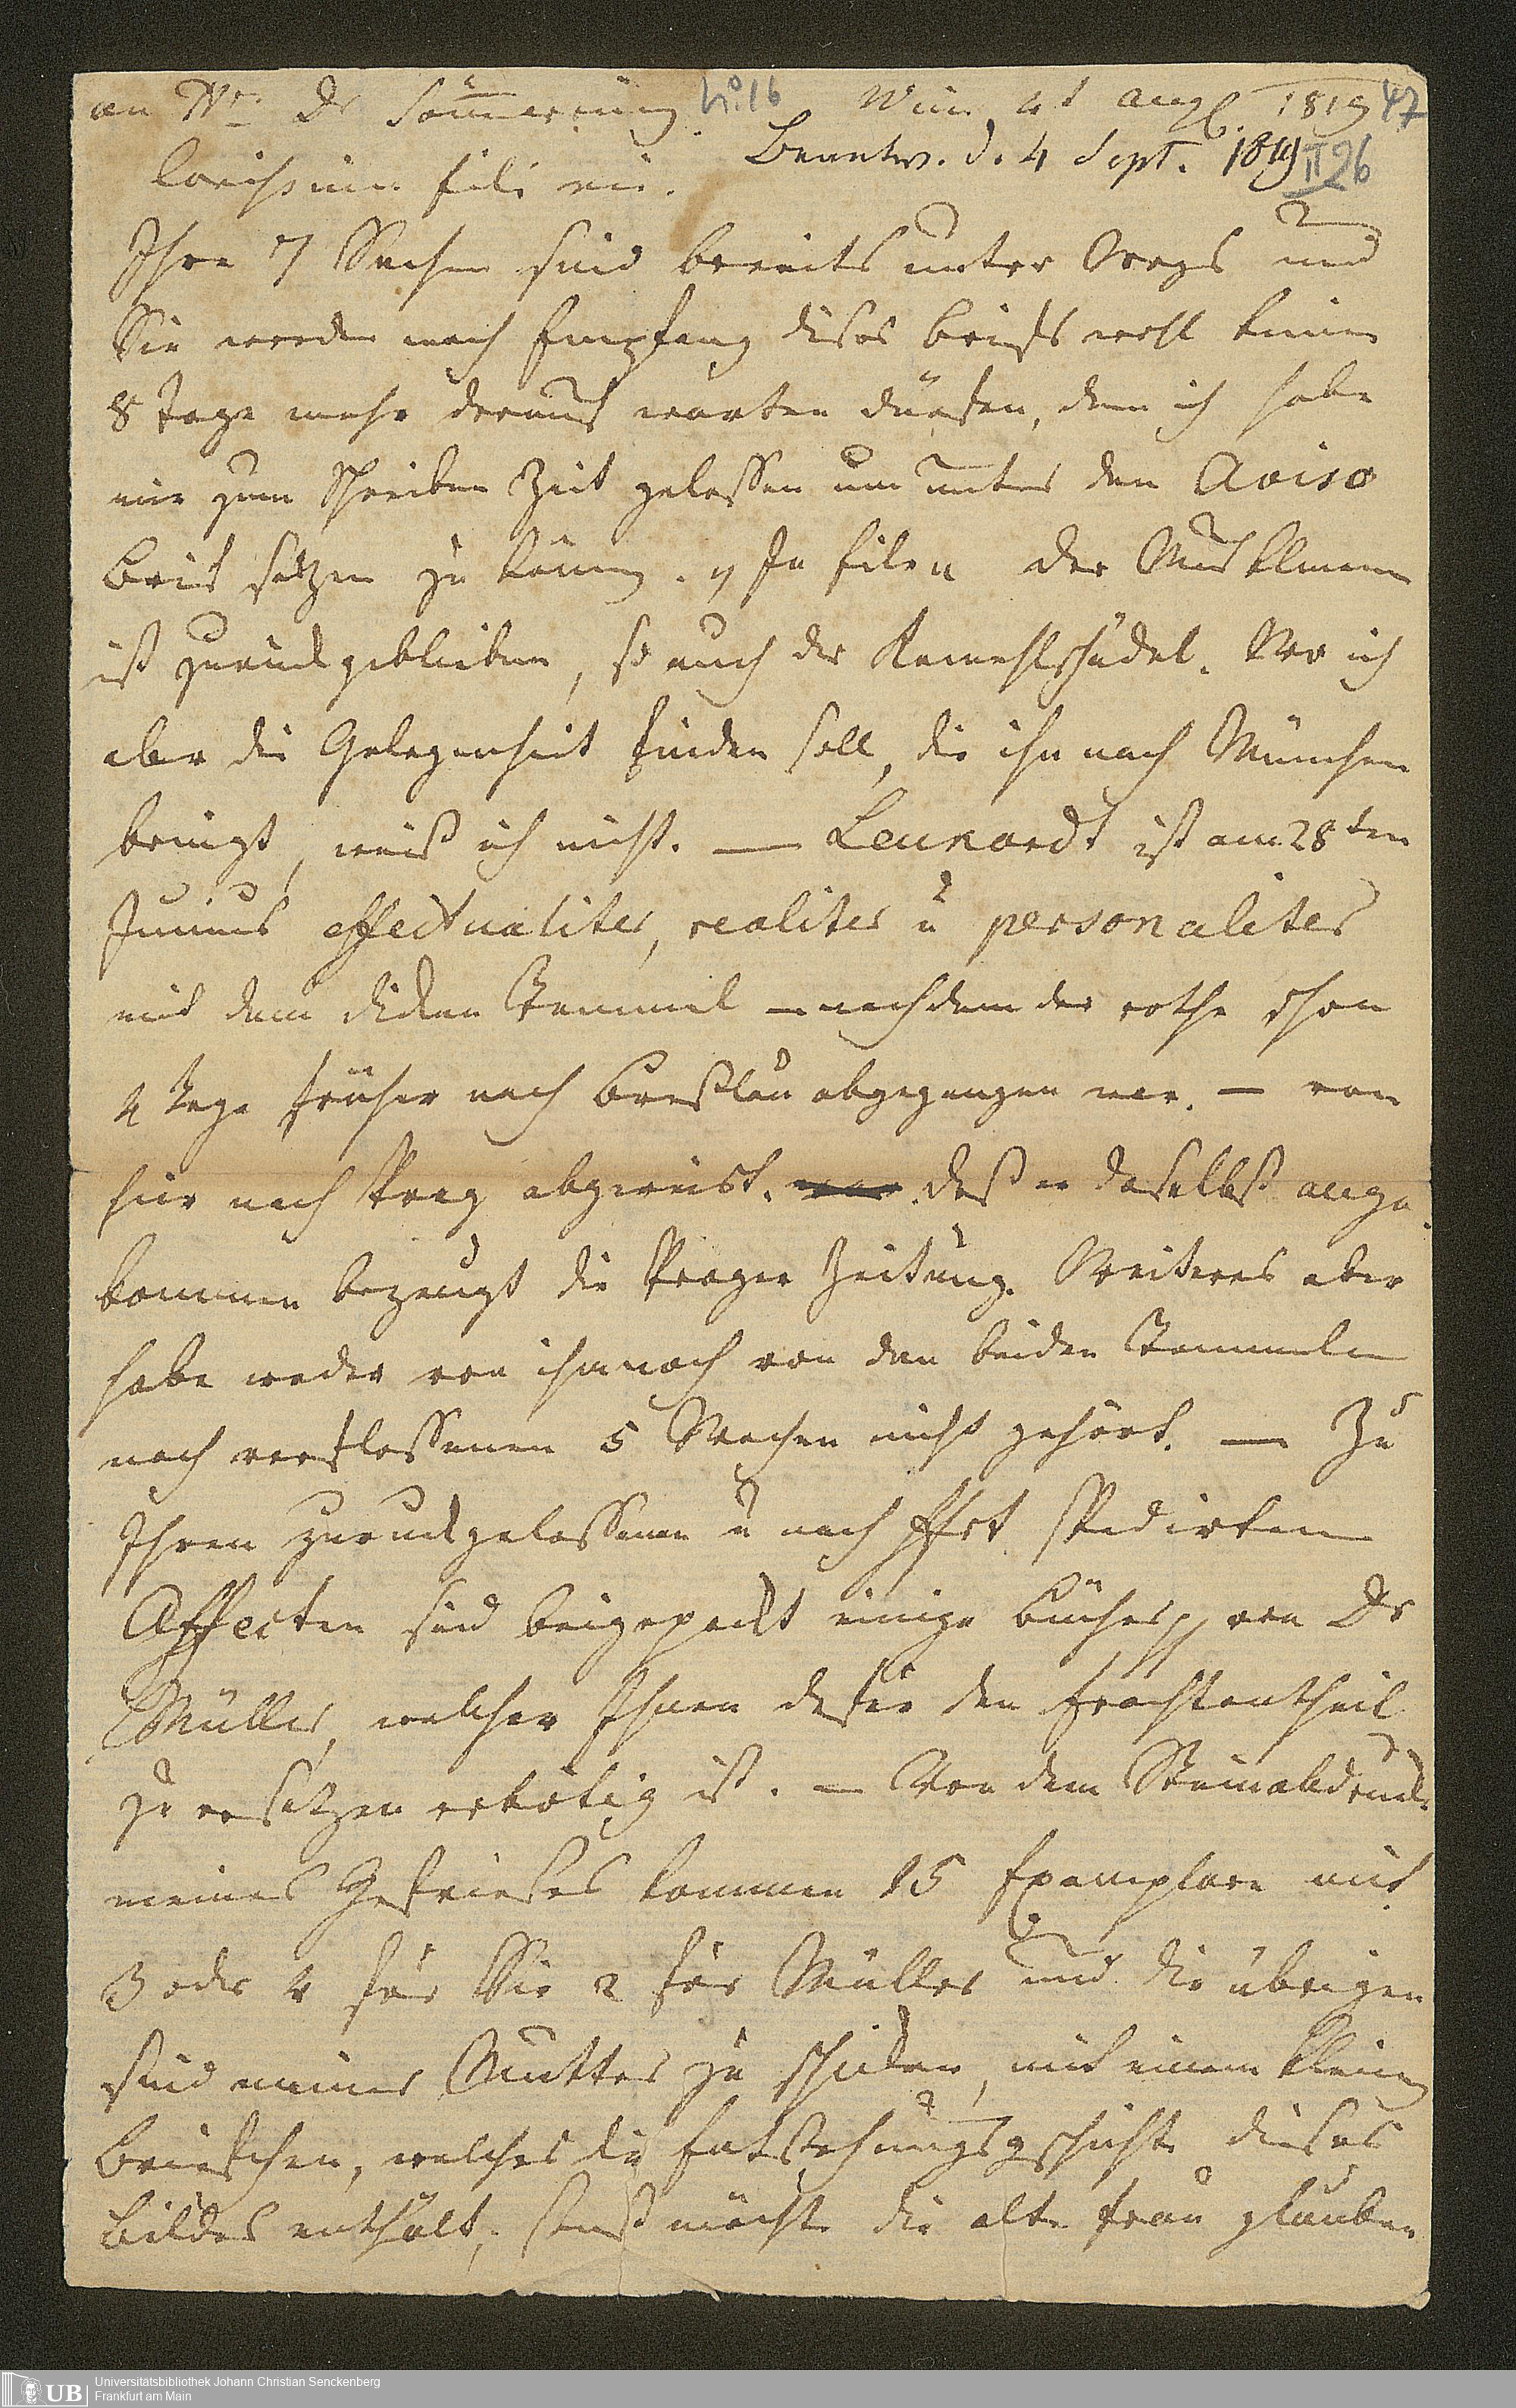 an Hr. Dr Sömmerring No. 16 Wien 4t Augst. 1819 47
Carissime fili mi. Beantw. d. 4 Sept. 1819 II 26
Ihre 7 Sachen sind bereits unter Wegs und
Sie werden nach Empfang dises Briefs wohl keine
8 Tage mehr darauf warten dürfen, denn ich habe
mir zum Schreiben Zeit gelassen um unter den Aviso
Brief setzen zu können. Die der
ist zurückgeblieben, so auch der Kameelschädel. Wo ich
aber die Gelegenheit finden soll, die ihn nach München
bringt, weiß ich nicht. — Leukardt ist am 28ten
Junius effectualiter, realiter u personaliter
mit dem dicken Stammel — nachdem der rothe schon
4 Tage früher nach Breßlau abgegangen war. — von
hier nach Prag abgereist. Daß er daselbst ange
kommen bezeugt die Prager Zeitung. Weiteres aber
habe weder von ihm noch von den beiden Stammeln
nach verflossenen 5 Wochen nicht gehört. — Zu
Ihren zurückgelassenen u nach Ffrt spedirten
Effecten sind beigepackt einige Bücher, von Dr
Müller, welcher Ihnen dafür den Frachtantheil
zu ersetzen erbötig ist. — Von dem Steinabdruck
meines Gefrieses kommen 15 Exemplare mit
3 oder 4 für Sie 2 für Müller und die übrigen
sind meiner Mutter zu schicken, mit einem kleinen
Briefchen, welches die Entstehungsgschichte dieses
Bildes enthält; sonst möchte die alte Frau glauben
Universitätsbibliothek Johann Christian Senckenberg
Frankfurt am Main
UB